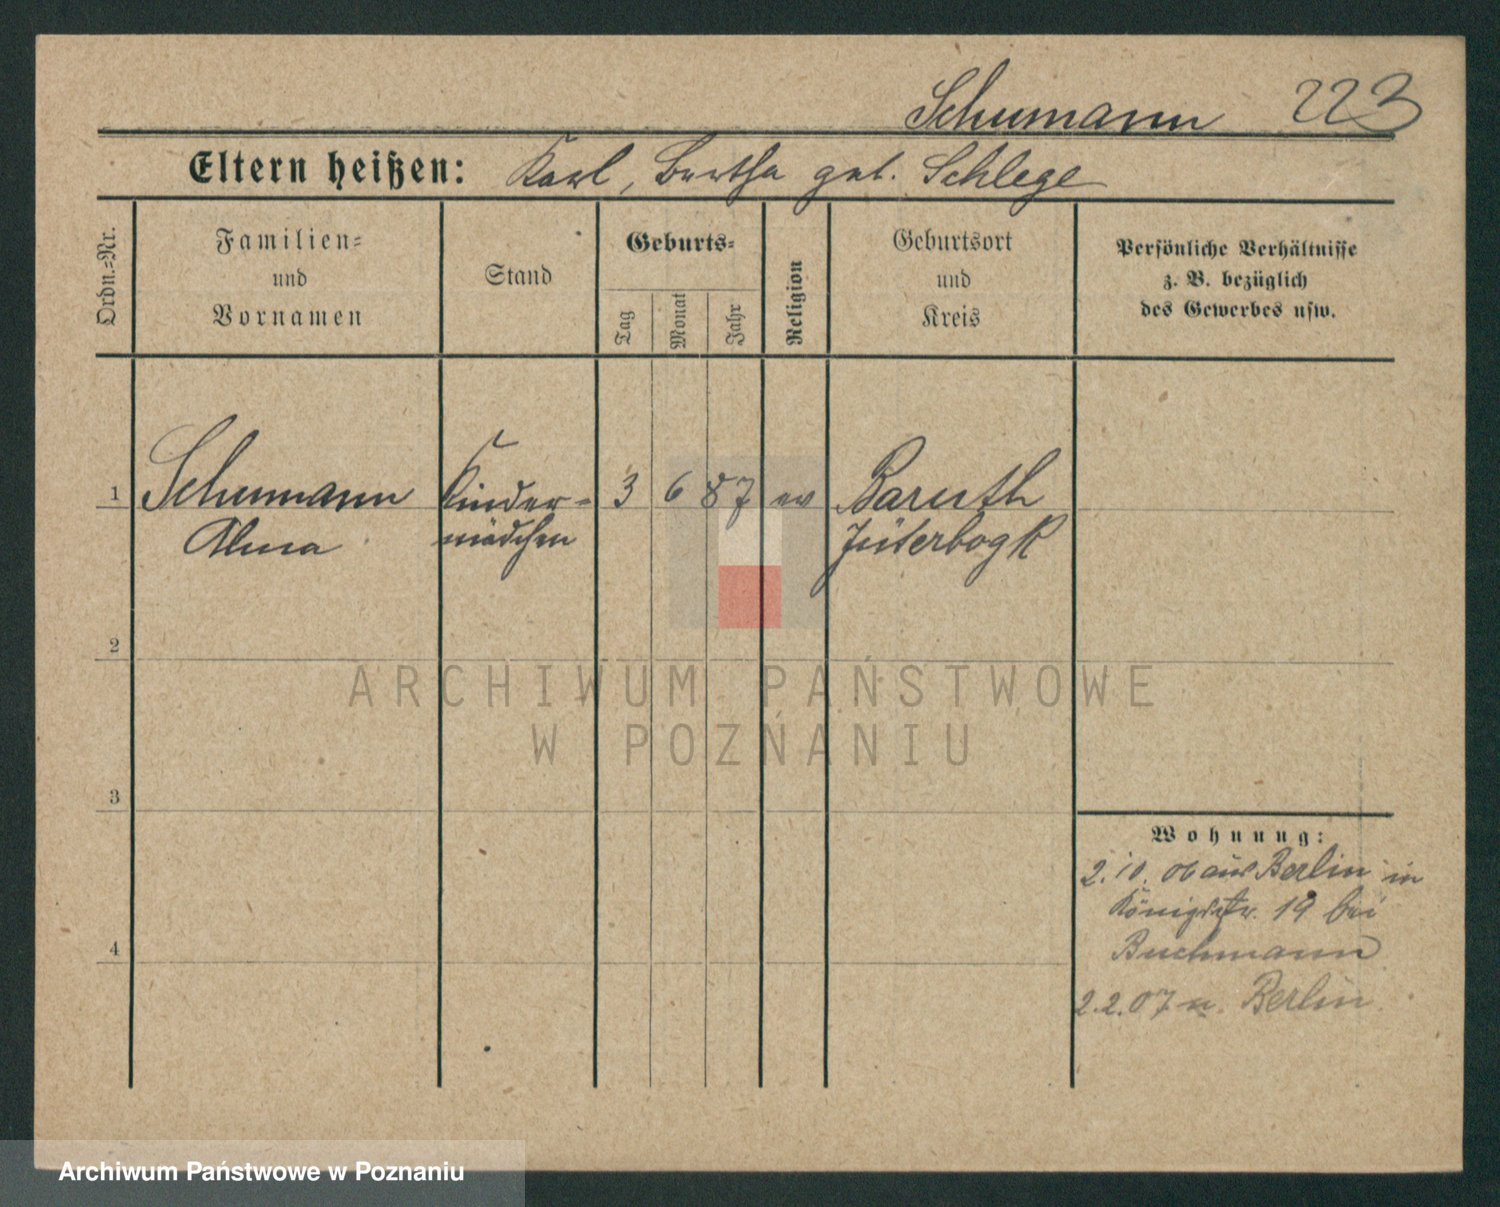 Schumann 223
Eltern heißen: Karl, Bertha geb. Schlege
Ordn.=Nr.
Familien=
und
Vornamen
Stand
Geburts=
Tag
Monat
Jahr
Religion
Geburtsort
und
Kreis
Persönliche Verhältnisse
z. B. bezüglich
des Gewerbes usw.
1 Schumann Kinder= 3 6 87 ev Baruth
Alma mädchen Jüterbogk
2
3
4
Wohnung:
2. 10. 06 aus Berlin in
Königstr. 19 bei
Buchmann
2.2.07 n. Berlin
ARCHIWUM PAŃSTWOWE
W POZNANIU
Archiwum Państwowe w Poznaniu